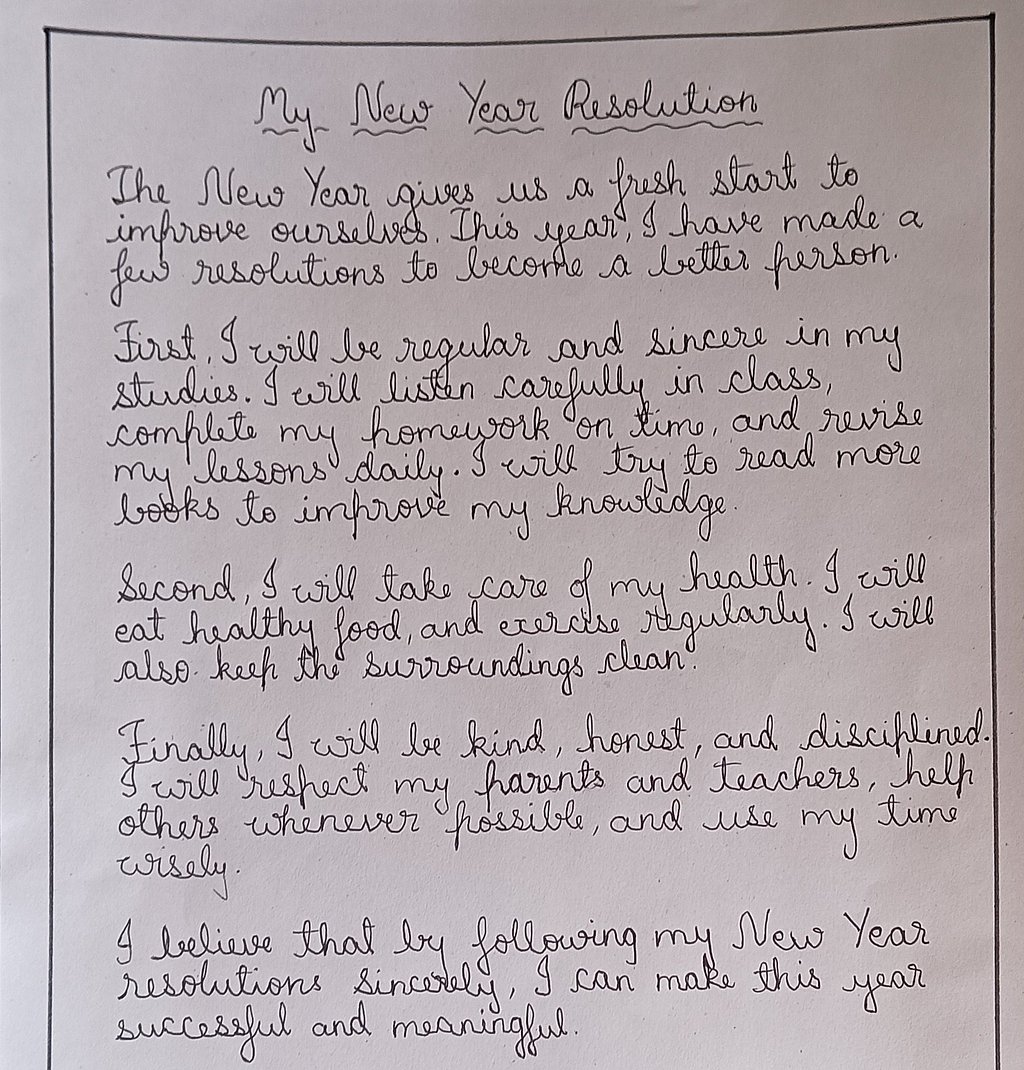 My New Year Resolution
The New Year gives us a fresh start to
improve ourselves. This year, I have made a
few resolutions to become a better person.
First, I will be regular and sincere in my
studies. I will listen carefully in class,
complete my homework on time, and revise
my lessons daily. I will try to read more
books to improve my knowledge.
Second, I will take care of my health. I will
eat healthy food, and exercise regularly. I will
also keep the surroundings clean.
Finally, I will be kind, honest, and disciplined.
I will respect my parents and teachers, help
others whenever possible, and use my time
wisely.
I believe that by following my New Year
resolutions sincerely, I can make this year
successful and meaningful.